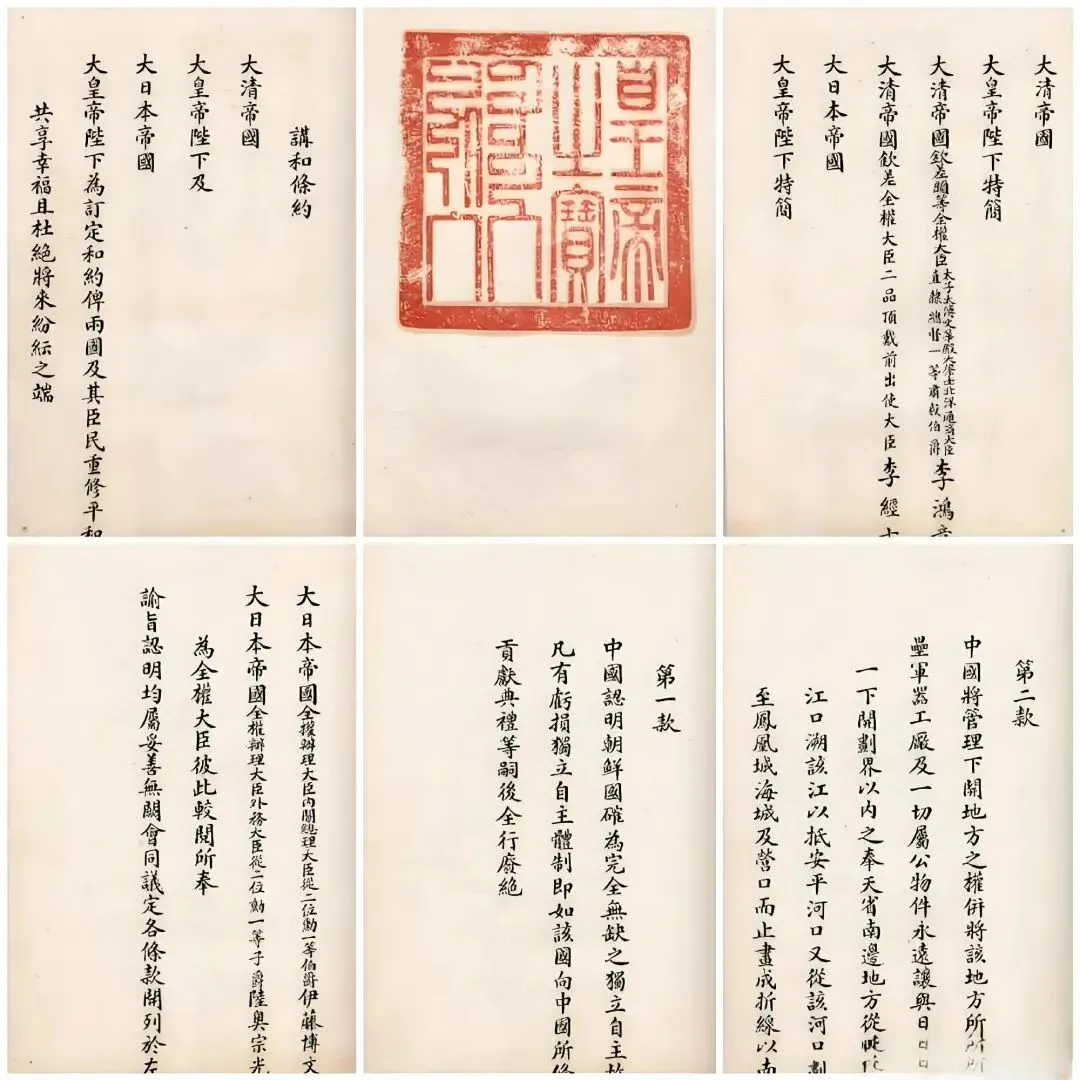 講和條約
大清帝國
大皇帝陛下及
大日本帝國
大皇帝陛下為訂定和約俾兩國及其臣民重修平和
共享幸福且杜絕將來紛紜之端
皇帝
之寶
大清帝國
大皇帝陛下特簡
大清帝國欽差頭等全權大臣太子太傅文華殿大學士北洋通商大臣直隸總督一等肅毅伯爵李鴻章
大清帝國欽差全權大臣二品頂戴前出使大臣李經
大日本帝國
大皇帝陛下特簡
大日本帝國全權辦理大臣內閣總理大臣從二位勳一等伯爵伊藤博文
大日本帝國全權辦理大臣外務大臣從二位勳一等子爵陸奧宗光
為全權大臣彼此較閱所奉
諭旨認明均屬妥善無闕會同議定各條款開列於左
第一款
中國認明朝鮮國確為完全無缺之獨立自主故
凡有虧損獨立自主體制即如該國向中國所修
貢獻典禮等嗣後全行廢絕
第二款
中國將管理下開地方之權併將該地方所所所
壘軍器工廠及一切屬公物件永遠讓與日日日
一下開劃界以內之奉天省南邊地方從
江口溯該江以抵安平河口又從該河口劃
至鳳凰城海城及營口而止畫成折線以南